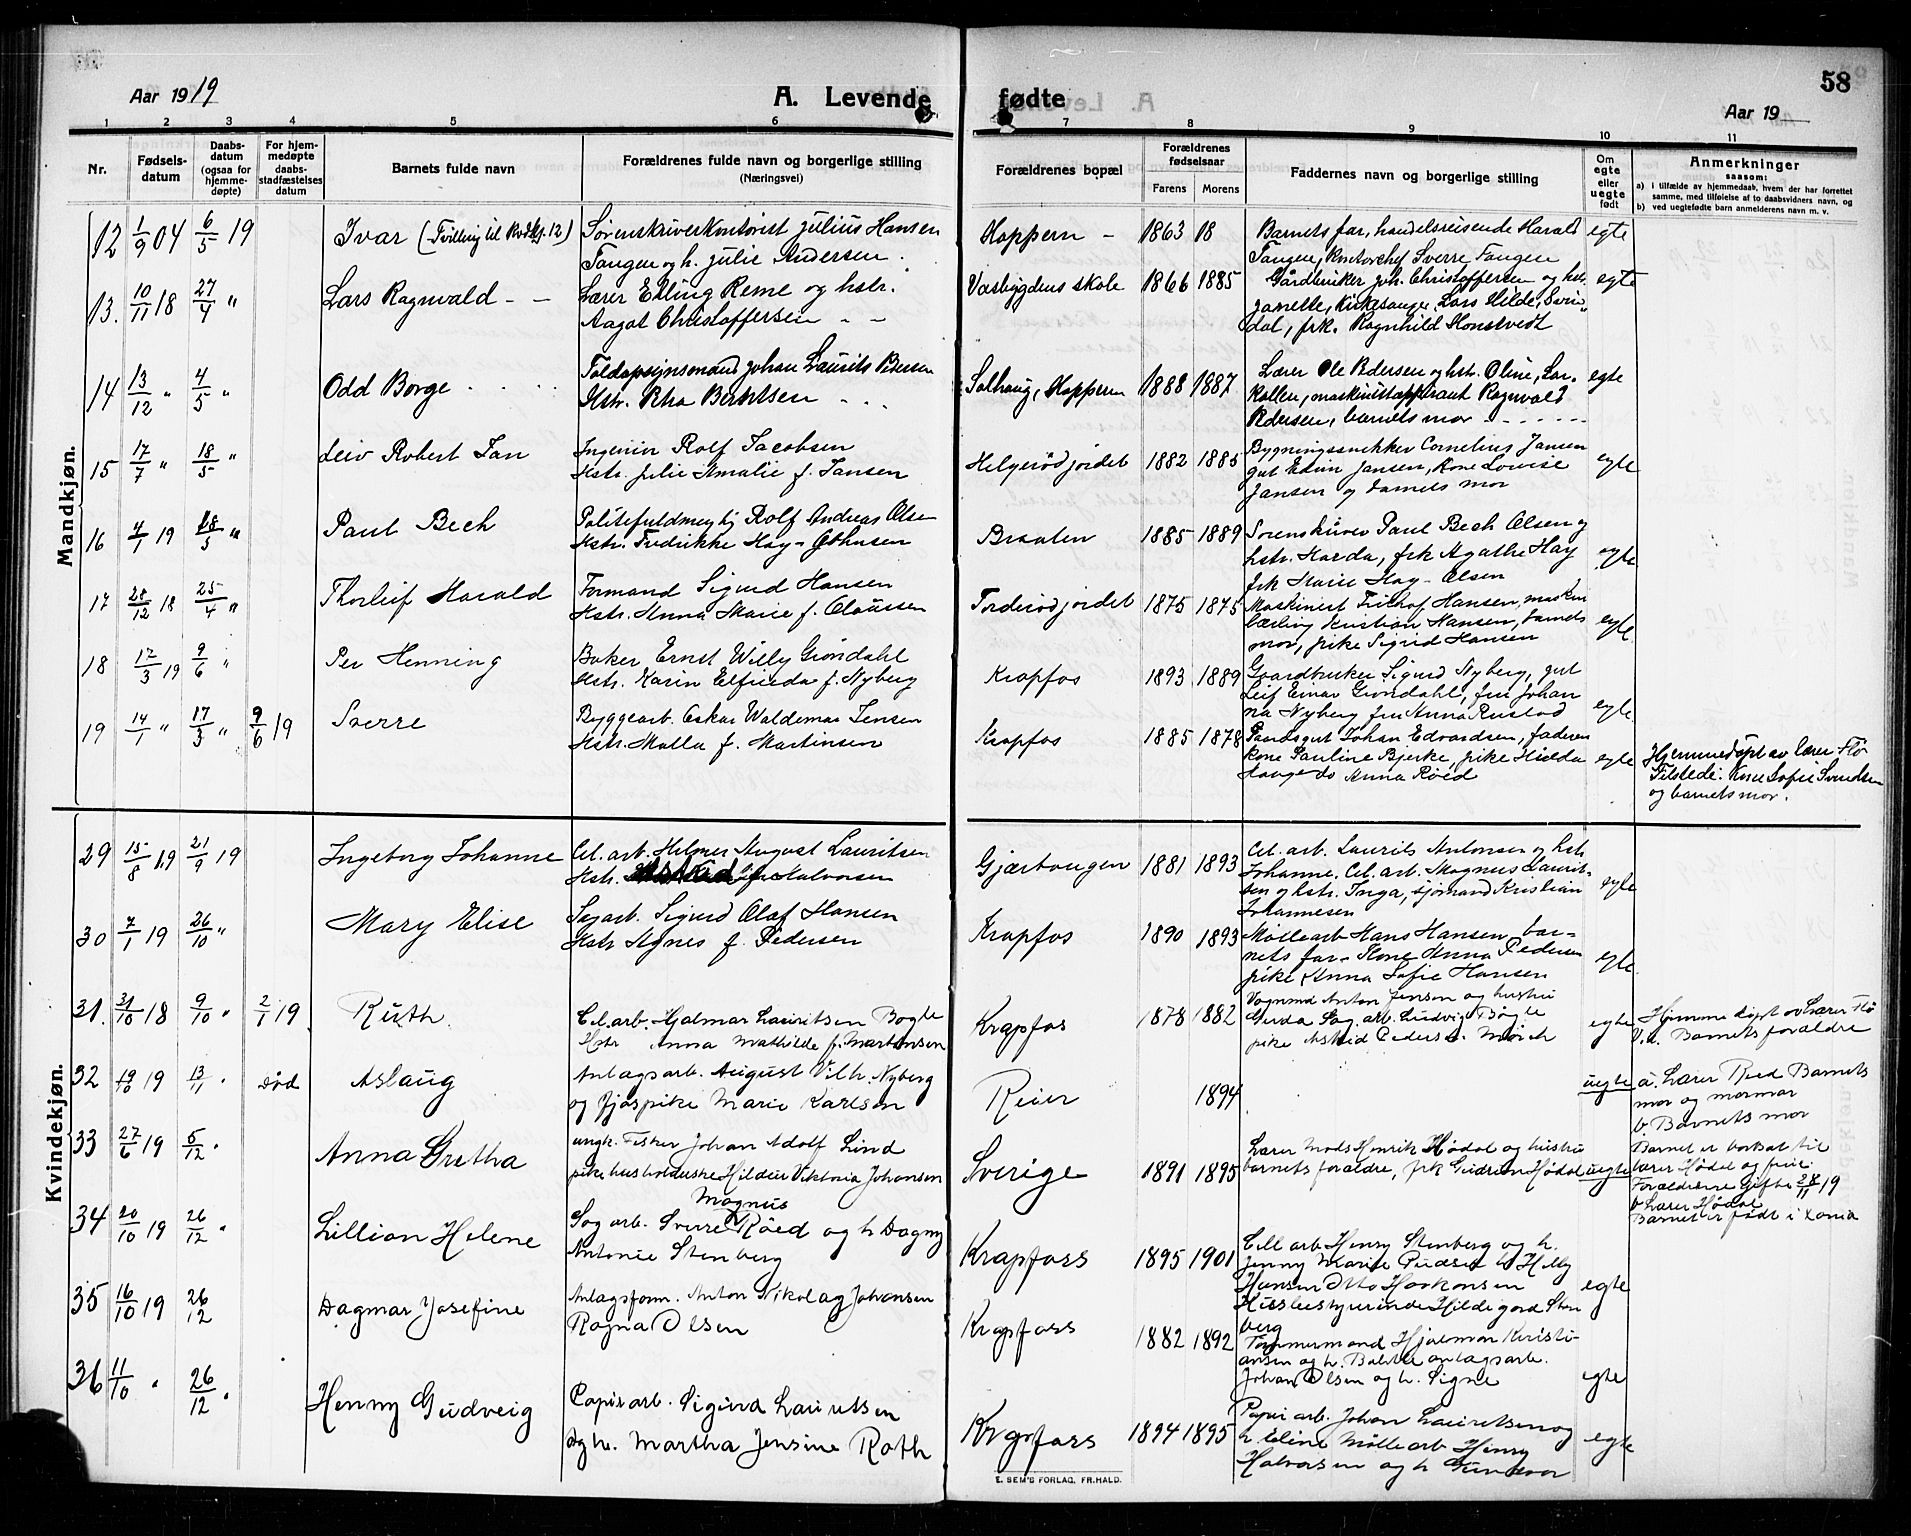 Aar 1919
A. Levende fødte
58
Aar 19
1 2 3 4 5 6 7 8 9 10 11
Nr.
Fødselsdatum
Daabsdatum (ogsaa for hjemmedøpte)
For hjemmedøpte daabsstadfæstelses datum
Barnets fulde navn
Forældrenes fulde navn og borgerlige stilling
(Næringsvei)
Forældrenes bopæl
Forældrenes fødselsaar
Farens Morens
Faddernes navn og borgerlige stilling
Om egte eller uegte født
Anmerkninger
saasom:
a) i tilfælde av hjemmedaab, hvem der har forrettet samme, med tilføielse af to daabsvidners navn, og
b) ved uegtefødte barn anmelderens navn m. v.
Mandkjøn.
12 1/9 04 6/5 19 Ivar (Tvilling til Kvdkj. 12) Sorenskriverkontorist Julius Hansen Hoppern - 1863 18 Barnets far, handelsreisende Harald egte
Tangen og h. Julie Andersen. Tangen, kontorchef Sverre Tangen
13. 10/11 18 27/4 " Lars Ragnvald - - Lærer Elling Reme og hstr. Vasbygdens skole 1866 1885 Gårdbruker Joh. Christoffersen og hst. egte
Aagot Christoffersen - - Janette, kirkesanger Lars Hilde, Svin-
dal, frk. Ragnhild Honstvedt
14 13/12 " 4/5 " Odd Borge Toldopsynsmand Johan Laurits Pedersen Solhaug, Hoppern 1888 1887 Lærer Ole Pedersen og hstr. Oline, Lar- egte
Hstr. Rha Berntsen kollen, maskinistaspirant Ragnvald
Pedersen, barnets mor
15 17/7 " 18/5 " Leiv Robert Jan Ingeniør Rolf Jacobsen Helgerødjordet 1882 1885 Bygningssnekker Cornelius Jansen egte
Hstr. Julie Amalie f. Jansen gut Edvin Jansen, Kone Lovise
Jansen og barnets mor
16 4/1 19 18/5 " Paul Bech Politifuldmegtig Rolf Andreas Olsen Braaten 1885 1889 Sorenskriver Paul Bech Olsen og
Hstr. Fredrikke Høy- hstr. Harda, frk Agathe Høy egte
frk Marie Høy-Olsen
17 28/12 18 25/4 " Thorleif Harald Formand Sigurd Hansen Torderødjordet 1875 1875 Maskinist Frithof Hansen, maskin
Hstr. Anna Marie f. Claussen lærling Kristian Hansen, barnets egte
mor, pike Sigrid Hansen
18 17/3 19 9/6 " Per Henning Baker Ernst Willy Grøndahl Krapfos 1893 1889 Gaardbruker Sigurd Nyberg, gut
Hstr. Karin Elfrieda f. Nyberg Leif Einar Grøndahl, fru Johan
na Nyberg fru Anna Rustad egte
19 14/1 " 17/3 " 9/6 19 Sverre Byggearb. Oskar Waldemar Jensen Krapfos 1885 1878 Johan Edvardsen, fadern
Hstr. Malla f. Martinsen kone Pauline Bjerke, pike Hulda egte Hjemmedøpt av lærer Flø
Anna Røed Tilstede: Kone Sofie Svendsen
og barnets mor.
Kvindekjøn.
29 15/8 19 21/9 19 Ingeborg Johanne Cel. arb. Hilmer August Lauritsen Gjærhaugen 1881 1893 Cel. arb. Laurits Antonsen og hstr
Hstr. Halvorsen Johanne. Cel. arb. Magnus Laurit- egte
sen og hstr. Inga, sjømand Kristian
Johannesen
30 7/1 19 26/10 " Mary Elise Sagarb. Sigurd Olaf Hansen Krapfos 1890 1893 Møllearb Hans Hansen, bar-
Hstr Agnes f. Pedersen nets far - Kone Anna Pedersen egte
pike Anna Sofie Hansen
31. 31/10 18 9/10 " 2/1 19 Ruth. Cel. arb. Hjalmar Lauritsen Bogle Krapfos 1878 1882 Vognmd Anton Jensen og hustru
Hstr Anna Mathilde f. Martinsen Gerda Sag. arb. Ludvig Bøgle egte Hjemme døpt av Lærer Flø
pike Astrid Peders. Mørch V.a. Barnets forældre
32 19/10 19 13/11 " død Aslaug Anlagsarb. August Vilh. Nyberg Reier 1894 uegte a. Lærer Reed Barnets
og fjøspike Marie Karlsen mor og mormor
b Barnets mor
33 27/6 19 5/12 " Anna Gretha ungk. Fisker Johan Adolf Lind Sverige 1891 1895 Lærer Mads Henrik Hødal og hustru Barnet er bortsat til
pike husholderske Hildur Viktoria Johansen barnets forældre, frk Gudrun Hødal uegte lærer Hødal og frue.
Forældrene Gifte 28/11 19
b Lærer Hødal
Barnet er født i Xania
34 20/10 19 26/12 " Lillian Helene Magnus
Sag arb. Sverre Røed og h Dagny Krapfoss 1895 1901 Cell arb Henry Stenberg og h.
Antonie Stenberg Jenny Marie Helly
Hansen Otto Haakonsen egte
Hildegard Sten
berg
35 16/10 19 26/12 Dagmar Josefine Anlagsform. Anton Nikolag Johansen Krapfoss 1882 1892 Tømmermand Hjalmar Kristi-
Ragna Olsen ansen og h. anlagsarb.
Johan Olsen og h. Signe egte
36 11/10 " 26/12 " Henny Gudveig Papirarb. Sigurd Lauritsen Krapfoss 1894 1895 Papir arb. Johan Lauritsen og egte
og h. Martha Jensine Roth h Eline Mølle arb Henry
Halvorsen og h Gundvor
E. SEM'S FORLAG, FR.HALD.